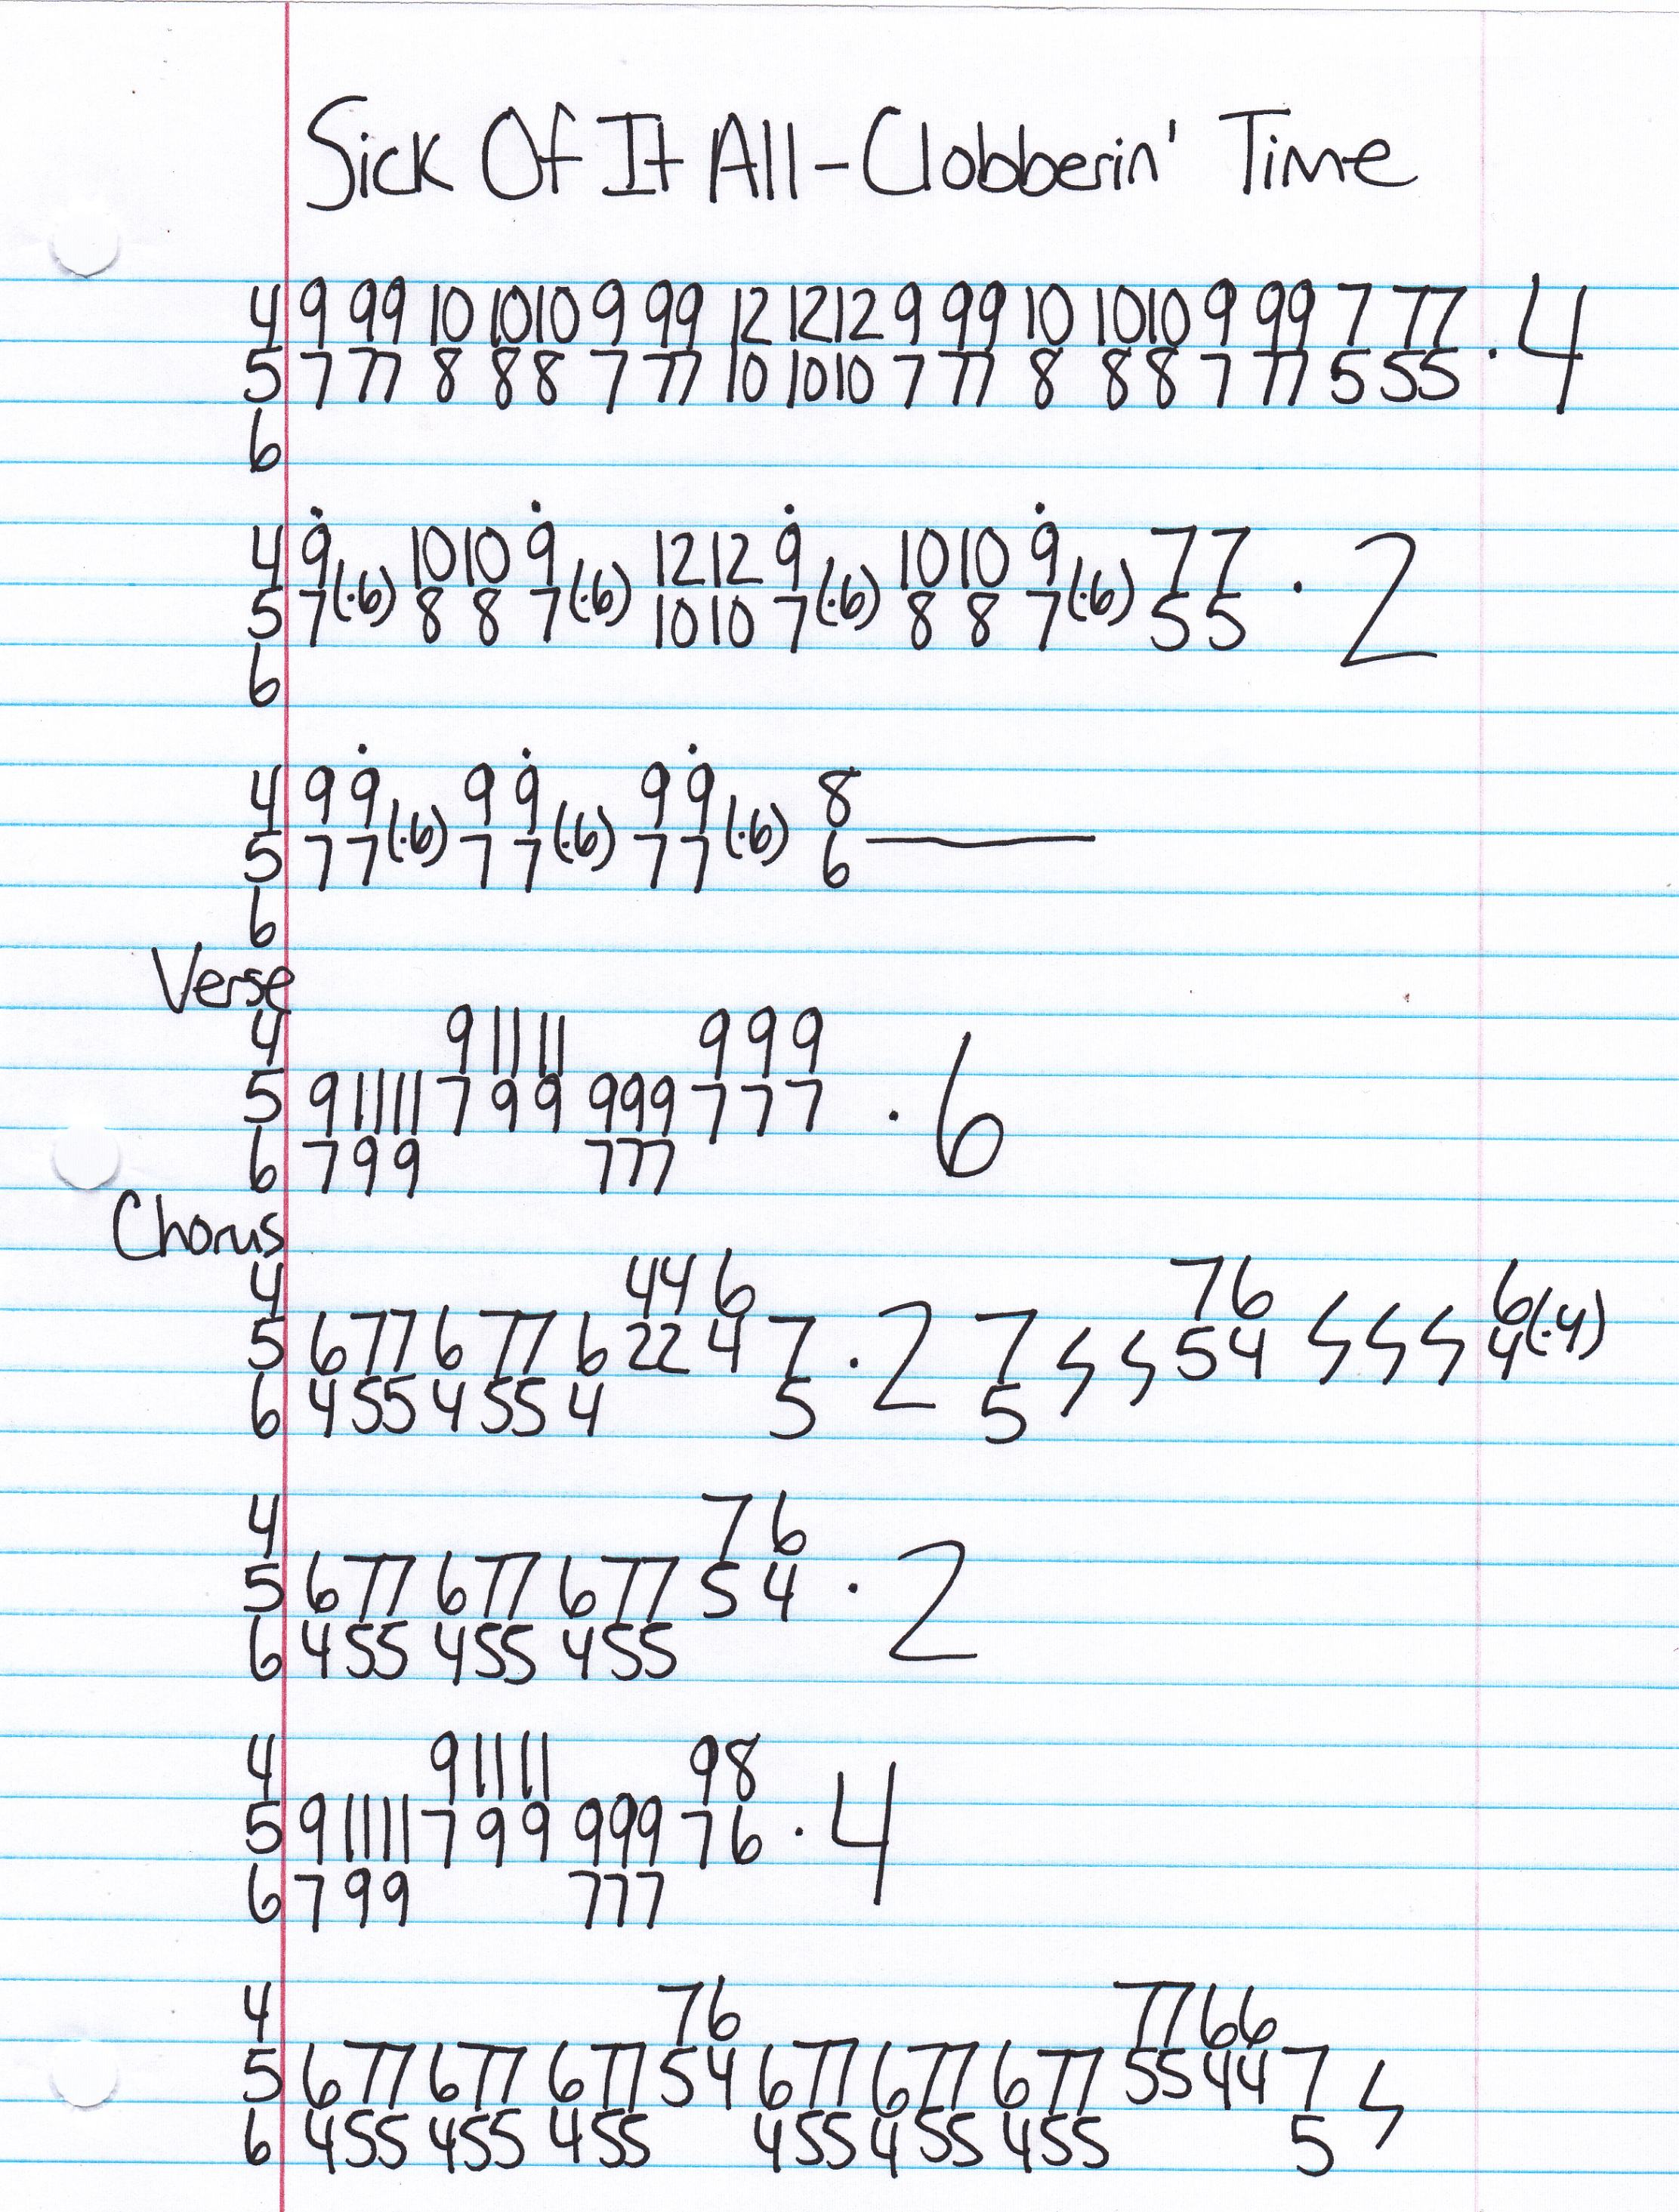 Sick Of It All - Clobberin' Time
4 9 99 10 1010 9 99 12 1212 9 99 10 1010 9 99 7 77 · 4
5 7 77 8 88 7 77 10 1010 7 77 8 88 7 77 5 55
6
4 9 (·6) 10 10 9 (·6) 12 12 9 (·6) 10 10 9 (·6) 77 · 2
5 7 8 8 7 10 10 7 8 8 7 55
6
4 9 9 (·6) 9 9 (·6) 9 9 (·6) 8
5 7 7 7 7 7 7 6
6
Verse
4 9 11 11 9 9 9
5 9 11 11 7 9 9 999 7 7 7 · 6
6 7 9 9 777
Chorus
4 44 6 76 6 (·4)
5 6 77 6 77 6 22 4 7 · 2 7 54 4
6 4 55 4 55 4 5 5
4 7 6
5 6 77 6 77 6 77 5 4 · 2
6 4 55 4 55 4 55
4 9 11 11 9 8
5 9 11 11 7 9 9 999 7 6 · 4
6 7 9 9 777
4 76 7766
5 6 77 6 77 6 77 54 6 77 6 77 6 77 5544 7
6 4 55 4 55 4 55 4 55 4 55 4 55 5